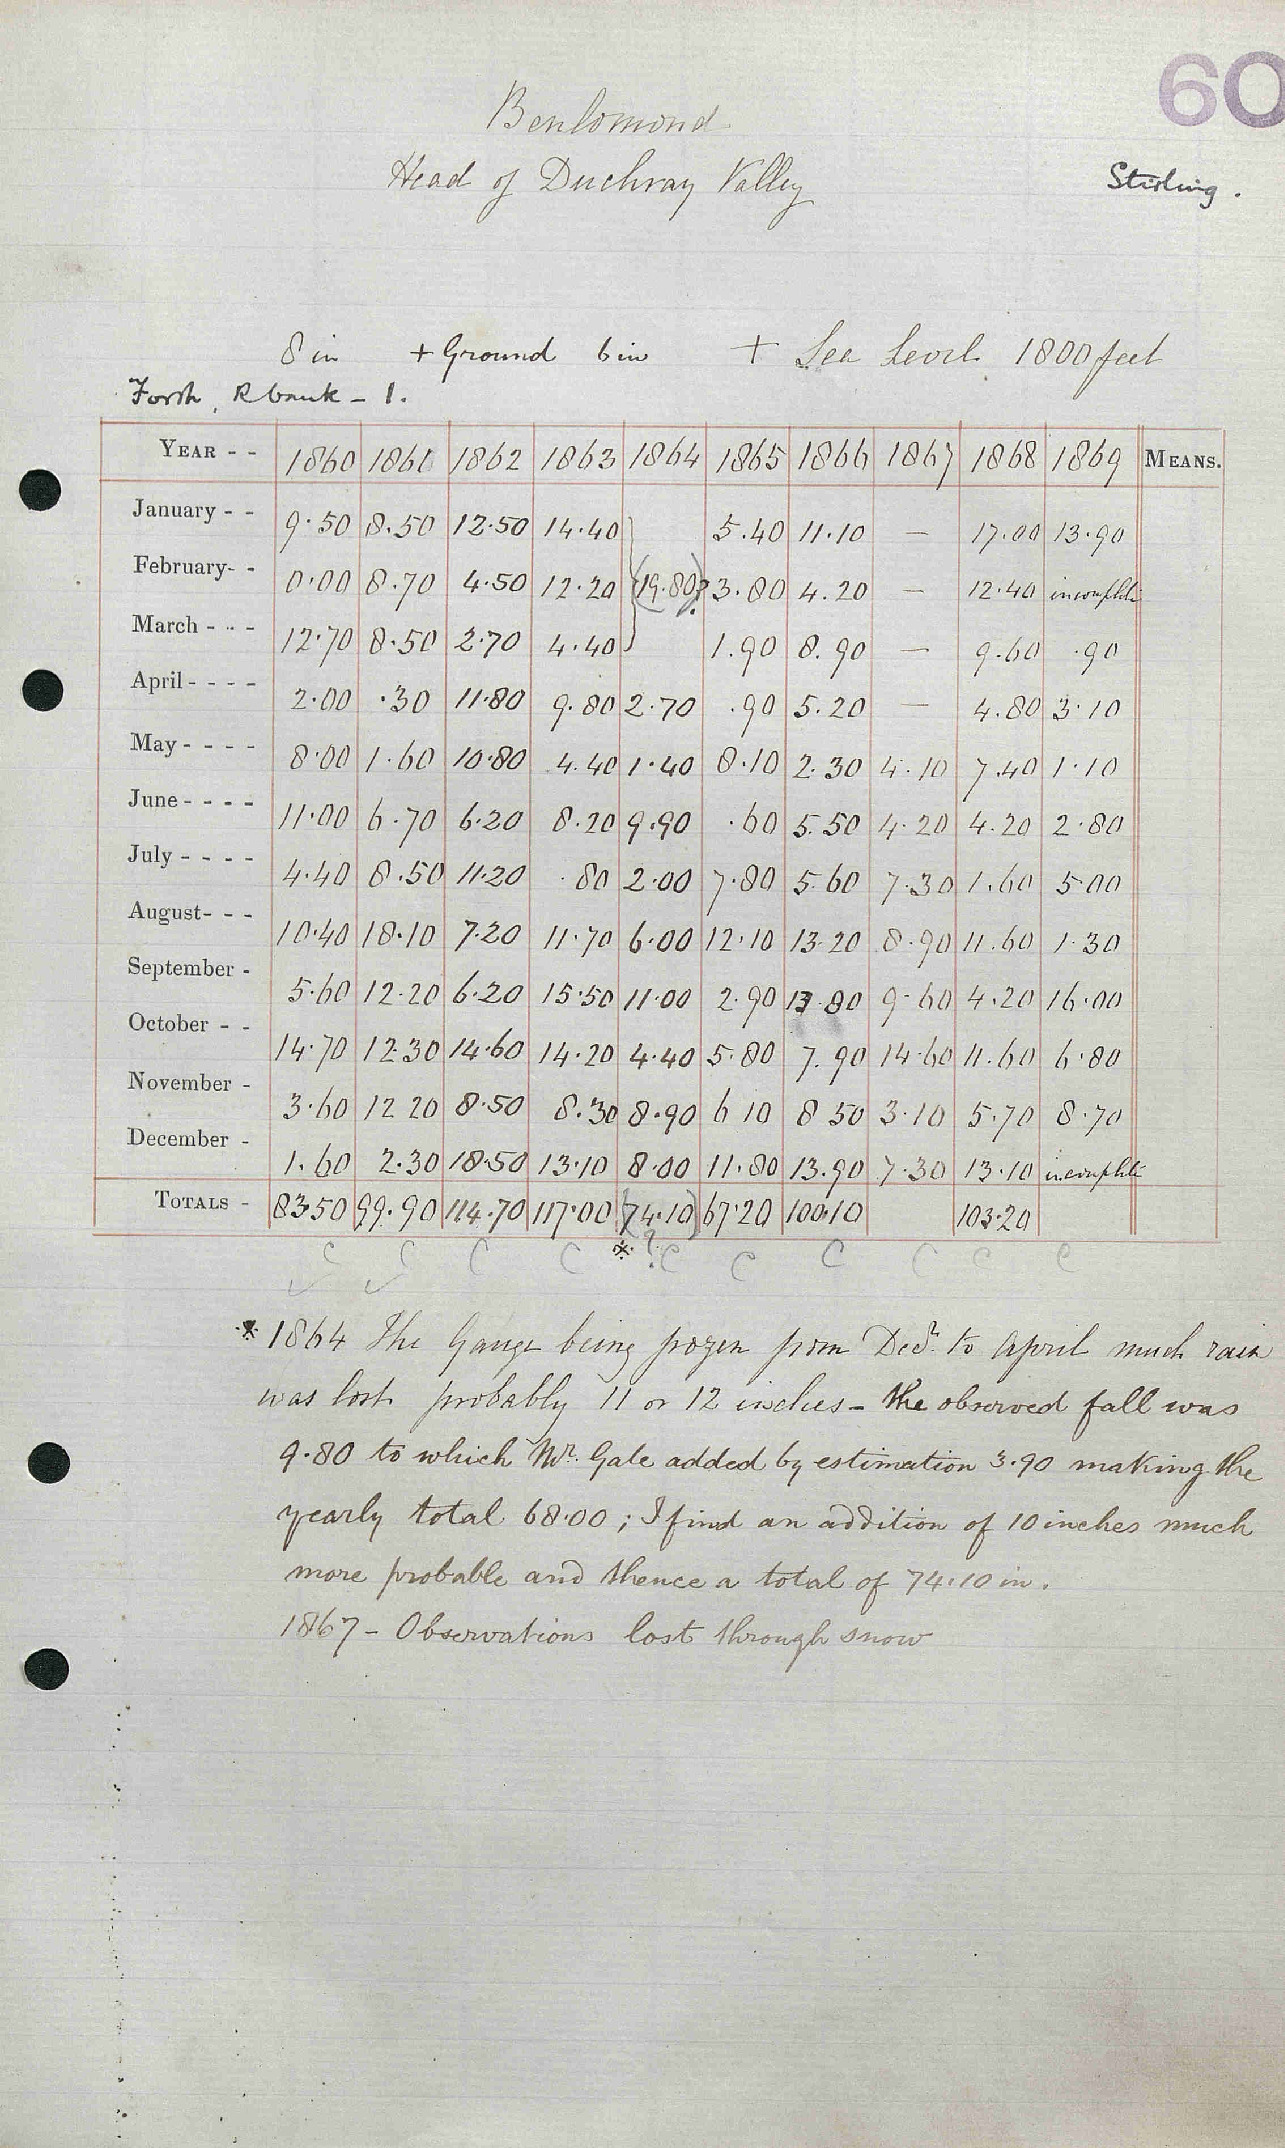 60
Benlomond
Head of Duchray Valley
Stirling.
8 in + Ground 6 in + Sea Level 1800 feet
Forth, Rbank - 1.
YEAR - - 1860 1861 1862 1863 1864 1865 1866 1867 1868 1869 MEANS.
January - - 9.50 8.50 12.50 14.40 5.40 11.10 — 17.00 13.90
February- - 0.00 8.70 4.50 12.20 (19.80)? 3.80 4.20 — 12.40 incomplete
March - - - 12.70 8.50 2.70 4.40 1.90 8.90 — 9.60 .90
April - - - - 2.00 .30 11.80 9.80 2.70 .90 5.20 — 4.80 3.10
May - - - - 8.00 1.60 10.80 4.40 1.40 8.10 2.30 4.10 7.40 1.10
June - - - - 11.00 6.70 6.20 8.20 9.90 .60 5.50 4.20 4.20 2.80
July - - - - 4.40 8.50 11.20 .80 2.00 7.80 5.60 7.30 1.60 5.00
August- - - 10.40 18.10 7.20 11.70 6.00 12.10 13.20 8.90 11.60 1.30
September - 5.60 12.20 6.20 15.50 11.00 2.90 13.80 9.60 4.20 16.00
October - - 14.70 12.30 14.60 14.20 4.40 5.80 7.90 14.60 11.60 6.80
November - 3.60 12 20 8.50 8.30 8.90 6 10 8 50 3.10 5.70 8.70
December - 1.60 2.30 18.50 13.10 8.00 11.80 13.90 7.30 13.10 incomplete
TOTALS - 83.50 99.90 114.70 117.00 (74.10) 67.20 100.10 103.20
C C C C * ? C C C C C C
* 1864 The Gauge being frozen from Decr. to April much rain
was lost probably 11 or 12 inches - the observed fall was
9.80 to which Mr. Gale added by estimation 3.90 making the
yearly total 68.00; I find an addition of 10 inches much
more probable and thence a total of 74.10 in.
1867 - Observations lost through snow